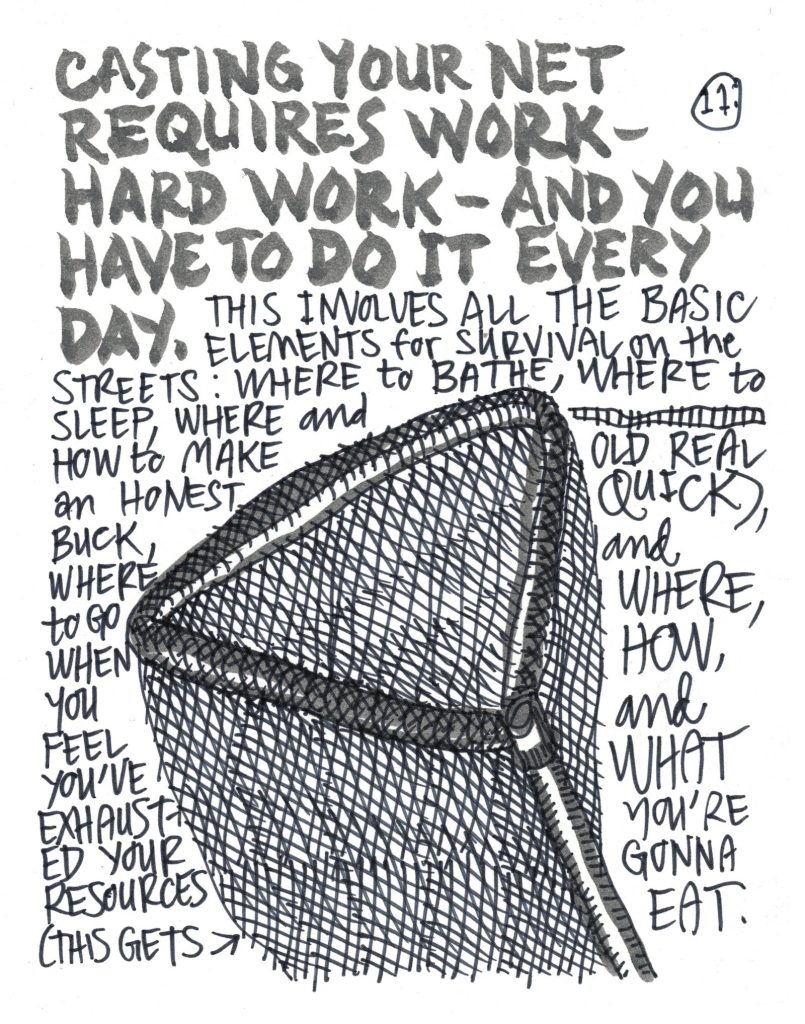 CASTING YOUR NET
17.
REQUIRES WORK-
HARD WORK - AND YOU
HAVE TO DO IT EVERY
DAY.
THIS INVOLVES ALL THE BASIC
ELEMENTS for SURVIVAL on the
STREETS: WHERE to BATHE, WHERE to
SLEEP, WHERE and
HOW to MAKE
an HONEST
BUCK,
WHERE
to GO
WHEN
YOU
FEEL
YOU'VE
EXHAUST-
ED YOUR
RESOURCES
(THIS GETS →
OLD REAL
QUICK),
and
WHERE,
HOW,
and
WHAT
YOU'RE
GONNA
EAT.